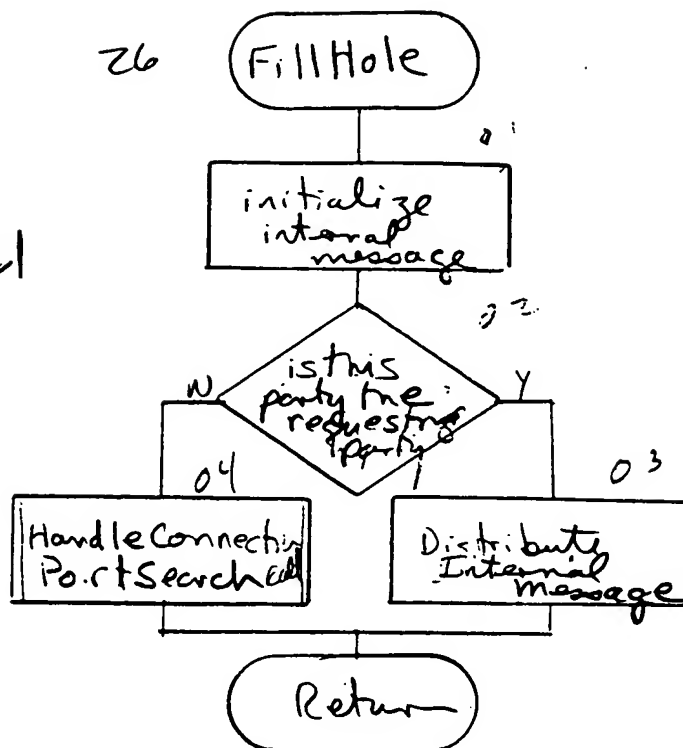 26
Fill Hole
01
initialize
internal
message
02
is this
party the
requesting
party
N
Y
04
03
Handle Connection
Port Search Call
Distribute
Internal
Message
Return